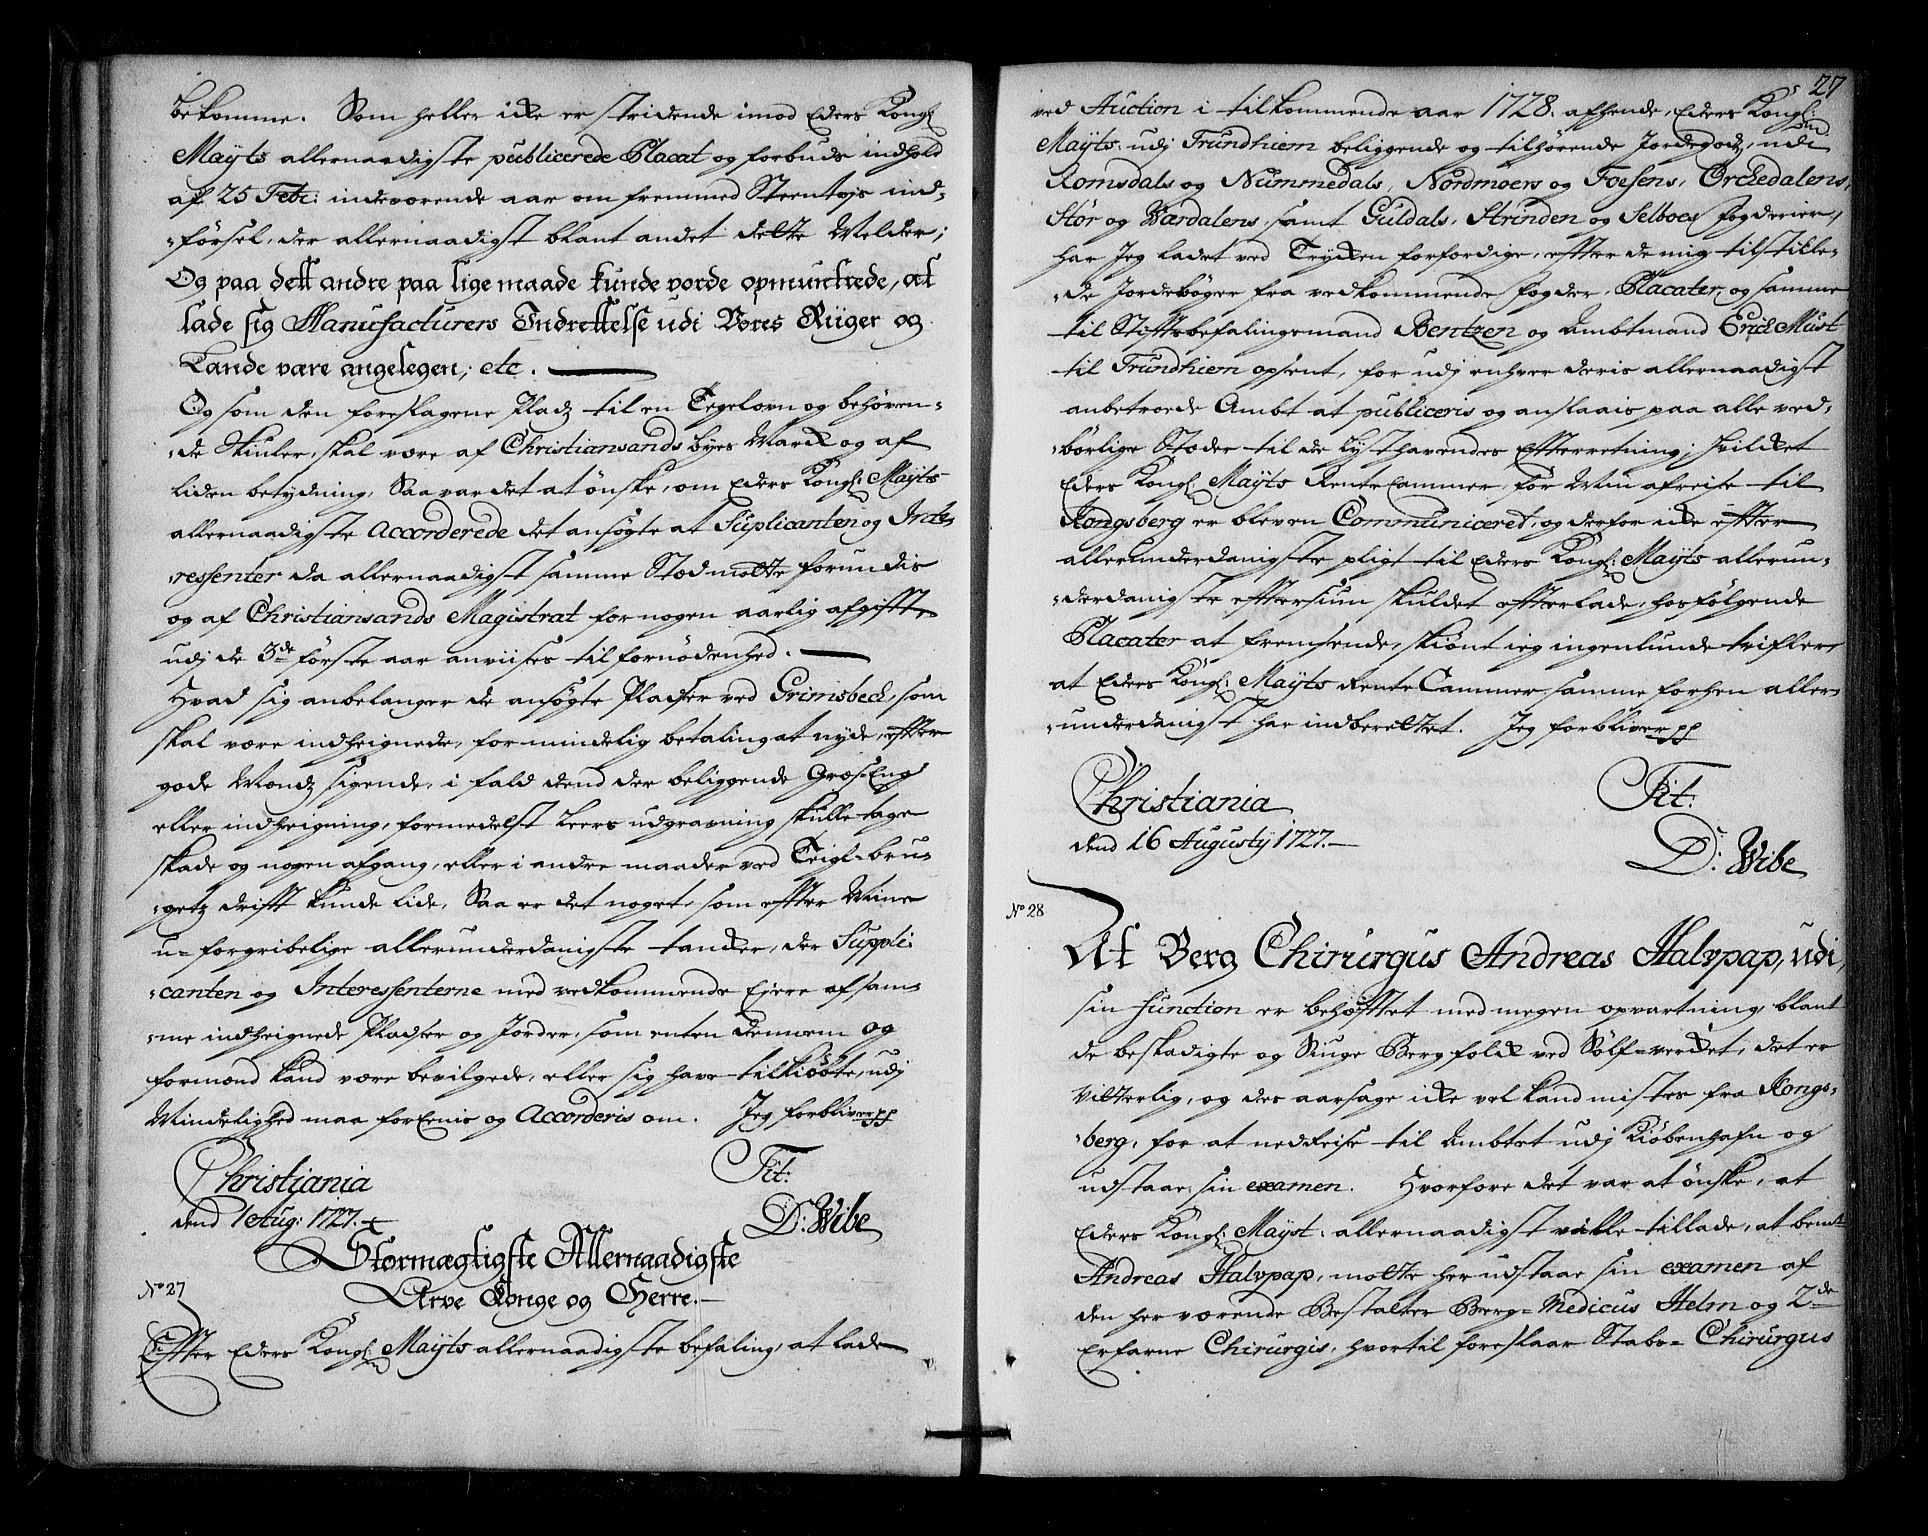 bekomme. Som heller icke er stridende imod Eders Kongl:
Mayts allernaadigste publicerede Placat og forbuds indhold
af 25 Febr: indeværende aar om fremmed Steentøjs ind-
-førsel, der allernaadigst blant andet dette Melder;
Og paa dett andre paa lige maade kunde vorde opmuntrede, at
lade sig Manufacturers Indrettelse udi Vores Riiger og
Lande være angelegen, etc.
Og som den foreslagene Pladz til en Tegelovn og behøven-
-de Skiuler, skal være af Christiansands byes Marck og af
liden betydning, Saa var det at ønske, om Eders Kongl: Mayts
allernaadigste Accorderede det ansøgte at Suplicanten og Inte-
-ressenter da allernaadigst samme Stæd motte forundis
og af Christiansands Magistrat for nogen aarlig afgifft,
udj de 3de første aar anviises til fornødenhed.
Hvad sig anbelanger de ansøgte Pladser ved Grimsbeck, som
skal være indheignede, for mindelig betaling at nyde, efter
gode Mænds sigende, i fald dend der beliggende Græs-Eng
eller indheigning, formedelst Leers udgravning skulle tage
skade og nogen afgang, eller i andre maader ved Teigl-bru-
-getz drifft kunde lide, Saa er det nogete som effter Mine
u-forgribelige allerunderdanigste tancker, der Suppli-
-canten og Interessenterne med vedkommende Ejere af sam-
-me indheignede Pladser og Jorder, som enten dennem og
formænd kand være bevilgede, eller sig have tilkiøbte, udj
Mindelighed maa foreenis og Accorderis om. Jeg forbliver pp
Christiania
dend 1 Aug: 1727.
Tit:
D: Wibe
Stormægtigste Allernaadigste
Arve Konge og Herre.
No 27
Effter Eders Kongl: Mayts allernaadigste befaling, at lade
27
ved Auction i tilkommende aar 1728. afhende, Eders Kongl:
Mayts udj Trundhiem beliggende og tilhørende Jordegodz, udi
Romsdals og Nummedals, Nordmoers og Foesens, Orchedalens,
Stör og Værdalens samt Guldals, Strinden og Selboes fogderier,
har Jeg ladet ved Trycken forfærdige, effter de mig tilstille-
-de Jordebøger fra vedkommende fogder, Placater, og samme
til Stiftsbefalingsmand Bentzen og Ambtmand Erick Must
til Trundhiem opsent, for udj enhver deris allernaadigst
anbetroede Ambt at publiceris og anslaais paa alle ved-
-børlige Stæder til de lysthavendes Effterretning; hvilcket
Eders Kongl: Mayts RenteCammer, før Min afreise til
Kongsberg er bleven Communiceret, og derfor icke effter
allerunderdanigste pligt til Eders Kongl: Mayts allerun-
-derdanigste effterstun skuldet effterlade, hosfølgende
Placater at fremsende, skiønt ieg ingenlunde tvifler,
at Eders Kongl: Mayts RenteCammer samme forhen aller-
-underdanigst har indberettet. Jeg forbliver pp
Christiania
dend 16 Augustj 1727.
Tit:
D: Wibe
No 28
At Berg Chirurgus Andreas Halvpap, udi,
sin function er behøfftet med megen opvartning, blant
de beskadigte og Siuge Berg folck ved Sølf-vercket, det er
vitterlig, og des aarsage icke vel kand mistes fra Kongs-
-berg, for at nedreise til Ambtet udj Kiøbenhafn og
udstaae sin examen. Hvorfore det var at ønske, at
Eders Kongl: Mayst: allernaadigst ville tillade, at bemte
Andreas Halvpap, motte her udstaae sin examen af
den her værende Bestalter Berg-Medicus Helm og 2de
Erfarne Chirurgis, hvortil foreslaar Stabs-Chirurgus